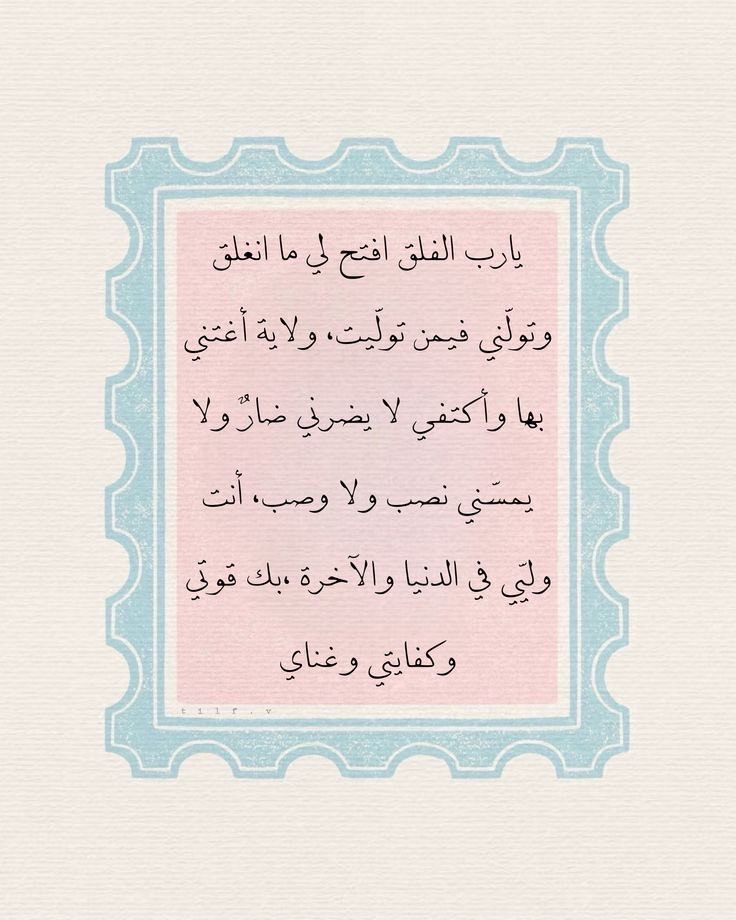 يارب الفلق افتح لي ما انغلق
وتولّني فيمن تولّيت، ولاية أغتني
بها وأكتفي لا يضرني ضارٌ ولا
يمسّني نصب ولا وصب، أنت
وليّي في الدنيا والآخرة ،بك قوتي
وكفايتي وغناي
t i l f . v